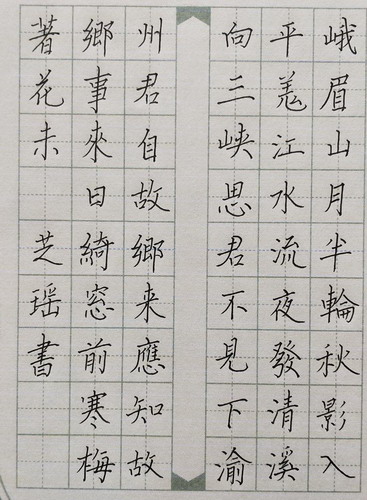 峨眉山月半輪秋影入
平羗江水流夜發清溪
向三峽思君不見下渝
州君自故鄉来應知故
鄉事來日綺窓前寒梅
著花未 芝瑶書